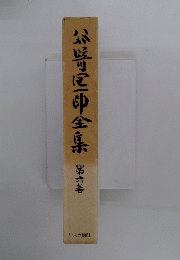 谷崎潤一郎全集
第六巻